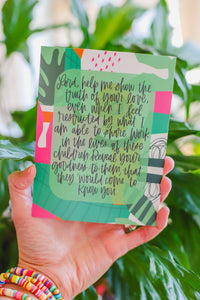 Lord, help me show the
truth of your love,
even when I feel
restricted by what I
am able to share. Work
in the lives of these
children. Reveal your
goodness to them that
they would come to
know you.